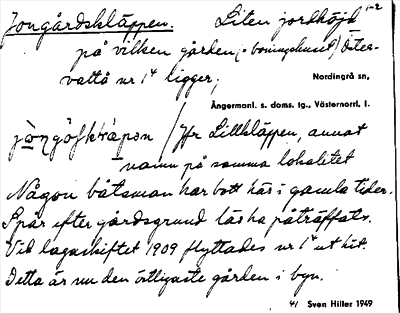 Jongårdskläppen. Liten jordhöjd 1-2
på vilken gården (=boningshuset) Öster-
vattå nr 1⁴ ligger;
Nordingrå sn,
Ångermanl. s. doms. tg., Västernorrl. l.
Jfr Lillkläppen, annat
namn på samma lokalitet
Någon båtsman har bott här i gamla tider.
Spår efter gårdsgrund läs ha påträffats.
Vid lagaskiftet 1909 flyttades nr 1⁴ ut hit.
Detta är nu den östligaste gården i byn.
Sven Hiller 1949